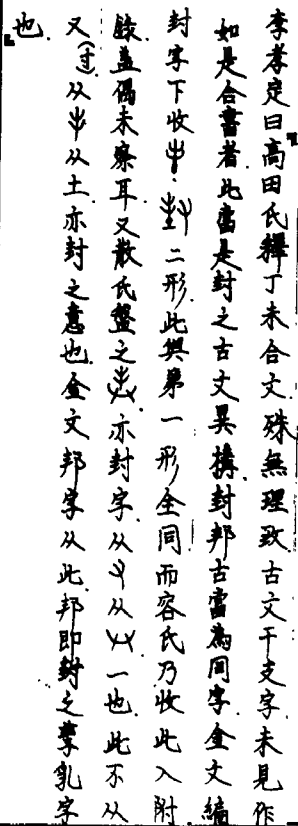 李孝定曰「高田氏釋丁未合文.殊無理致.古文干支字.未見作
如是合書者.此當是封之古文異構.封邦古當為同字.金文編
封字下收.二形.此與第一形全同.而容氏乃收此入附
錄.蓋偶未察耳.又散氏盤之.亦封字.从又从一也.此不从
又(寸).从从土.亦封之意也.金文邦字从此.邦即封之孳乳字
也.」